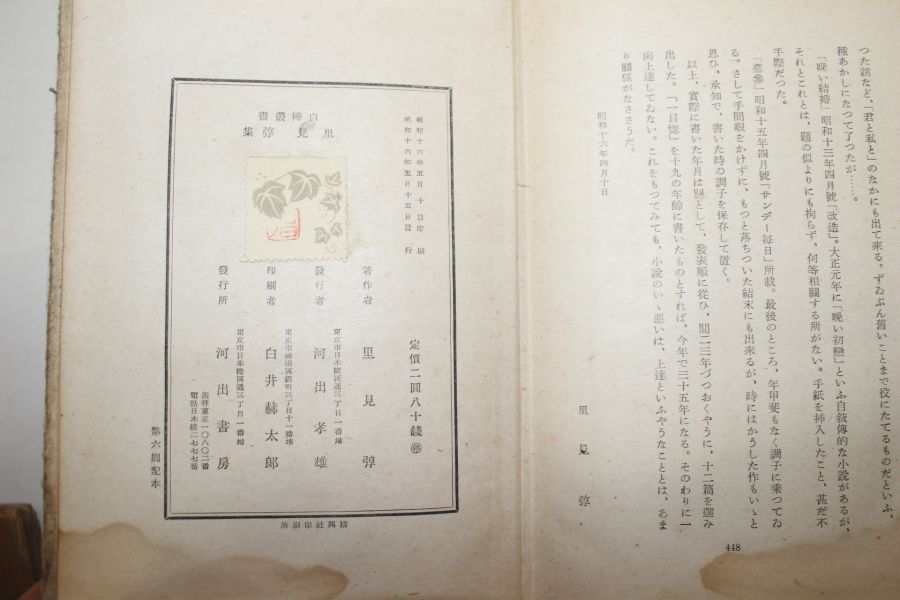 つた話など、「君と私と」のなかにも出て來る。ずゐぶん舊いことまで役にたてるものだといふ、
種あかしになつて了つたが……。
「晩い結婚」昭和十三年四月號「改造」。大正元年に「晩い初戀」といふ自敍傳的な小說があるが、
それとこれとは、題の似よりにも拘らず、何等相關する所がない。手紙を挿入したこと、甚だ不
手際だつた。
「墓參」昭和十五年四月號「サンデー每日」所載。最後のところ、年甲斐もなく調子に乘つてゐ
る。さして手間暇をかけずに、もつと落ちついた結末にも出來るが、時にはかうした作もいゝと
思ひ、承知で、書いた時の調子を保存して置く。
以上、實際に書いた年月は別として、發表順に從ひ、間二三年づつおくやうに、十二篇を選み
出した。「一目惚」を十九の年齡に書いたものとすれば、今年で三十五年になる。そのわりに一
向上達してゐない。これをもつてみても、小說のいゝ惡いは、上達といふやうなこととは、あま
り關係がなささうだ。
昭和十六年四月十日
里見弴
448
白樺叢書
里見弴集
昭和十六年五月十日印刷
昭和十六年五月十五日發行
定價二圓八十錢
著作者 里見弴
東京市日本橋區通三丁目一番地
發行者 河出孝雄
東京市神田區錦町三丁目十一番地
印刷者 白井赫太郎
東京市日本橋區通三丁目一番地
發行所 河出書房
振替東京一〇八〇二番
電話日本橋二七七七番
精興社印刷所
第六回配本